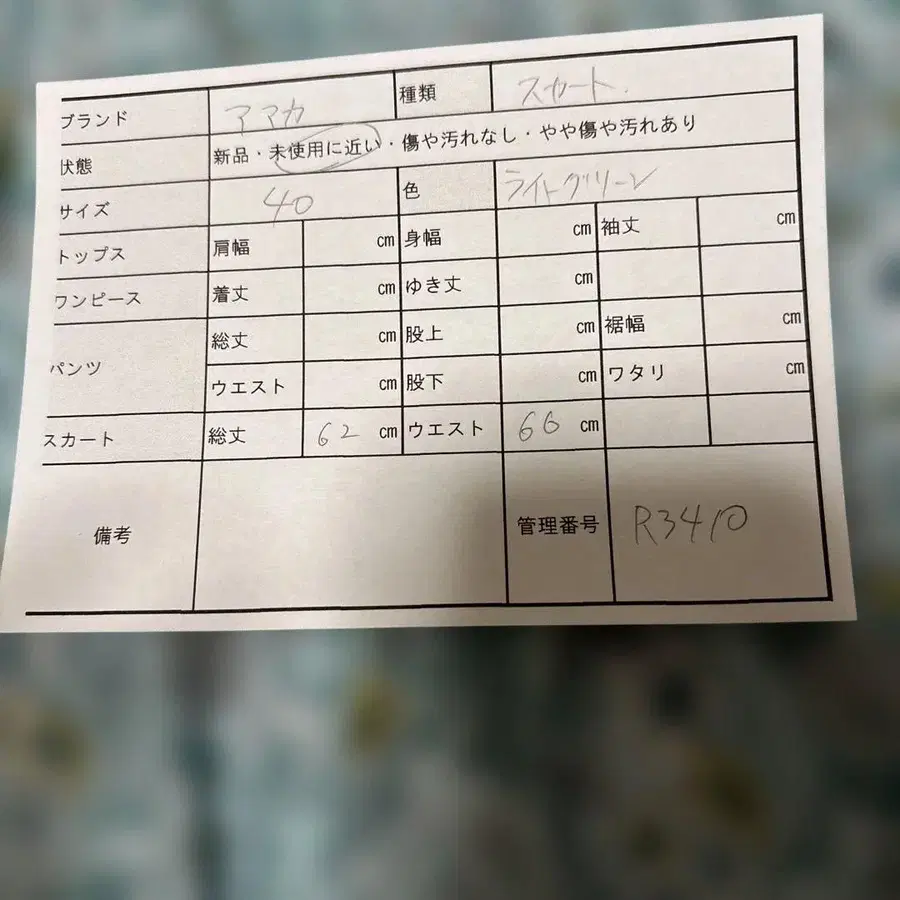 ブランド アマカ 種類 スカート.
状態 新品・未使用に近い・傷や汚れなし・やや傷や汚れあり
サイズ 40 色 ライトグリーン
トップス 肩幅 cm 身幅 cm 袖丈 cm
ワンピース 着丈 cm ゆき丈 cm
パンツ 総丈 cm 股上 cm 裾幅 cm
ウエスト cm 股下 cm ワタリ cm
スカート 総丈 62 cm ウエスト 66 cm
備考 管理番号 R3410